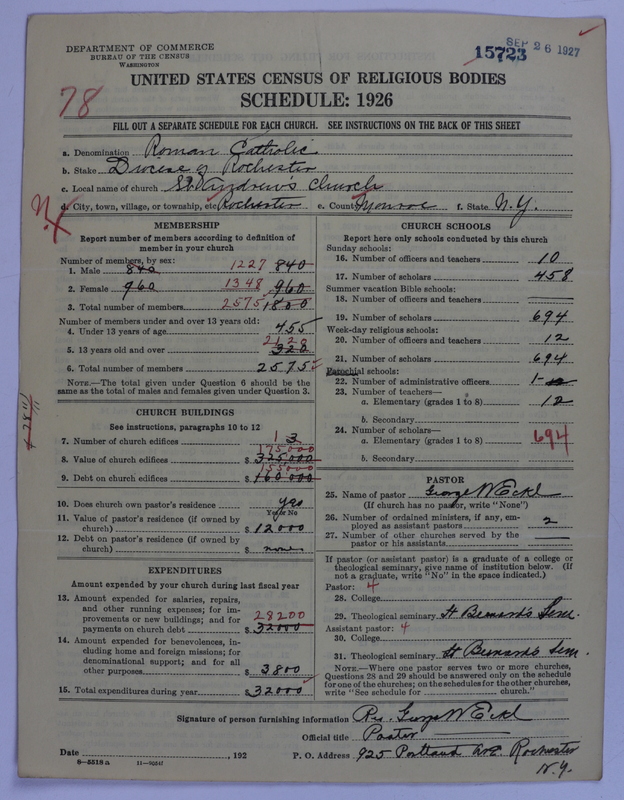 DEPARTMENT OF COMMERCE
BUREAU OF THE CENSUS
WASHINGTON
SEP 26 1927
15723
UNITED STATES CENSUS OF RELIGIOUS BODIES
SCHEDULE: 1926
78
FILL OUT A SEPARATE SCHEDULE FOR EACH CHURCH. SEE INSTRUCTIONS ON THE BACK OF THIS SHEET
a. Denomination Roman Catholic
b. Stake Diocese of Rochester
c. Local name of church St Andrew's Church
d. City, town, village, or township, etc. Rochester e. County Monroe f. State N.Y.
MEMBERSHIP
Report number of members according to definition of
member in your church
Number of members, by sex:
1. Male 840 1227 840
2. Female 960 1348 960
3. Total number of members 2575 1800
Number of members under and over 13 years old:
4. Under 13 years of age 455
5. 13 years old and over 2120 320
6. Total number of members 2575
NOTE.—The total given under Question 6 should be the
same as the total of males and females given under Question 3.
CHURCH BUILDINGS
See instructions, paragraphs 10 to 12
7. Number of church edifices 1 3
8. Value of church edifices $ 175000 325,000
9. Debt on church edifices $ 155000 160000
10. Does church own pastor's residence yes
Yes or No
11. Value of pastor's residence (if owned by
church) $ 12000
12. Debt on pastor's residence (if owned by
church) $ none
EXPENDITURES
Amount expended by church during last fiscal year
13. Amount expended for salaries, repairs,
and other running expenses; for im-
provements or new buildings; and for
payments on church debt $ 28200 32000
14. Amount expended for benevolences, in-
cluding home and foreign missions; for
denominational support; and for all
other purposes $ 3800
15. Total expenditures during year $ 32000
CHURCH SCHOOLS
Report here only schools conducted by this church
Sunday schools:
16. Number of officers and teachers 10
17. Number of scholars 458
Summer vacation Bible schools:
18. Number of officers and teachers
19. Number of scholars 694
Week-day religious schools:
20. Number of officers and teachers 12
21. Number of scholars 694
Parochial schools:
22. Number of administrative officers 1
23. Number of teachers—
a. Elementary (grades 1 to 8) 12
b. Secondary
24. Number of scholars—
a. Elementary (grades 1 to 8) 694
b. Secondary
PASTOR
25. Name of pastor George W Eckl
(If church has no pastor, write "None")
26. Number of ordained ministers, if any, em-
ployed as assistant pastors 2
27. Number of other churches served by the
pastor or his assistants
If pastor (or assistant pastor) is a graduate of a college or
theological seminary, give name of institution below. (If
not a graduate, write "No" in the space indicated.)
Pastor: 4
28. College
29. Theological seminary St Bernard's Sem.
Assistant pastor: 4
30. College
31. Theological seminary St Bernard's Sem.
NOTE.—Where one pastor serves two or more churches,
Questions 28 and 29 should be answered only on the schedule
for one of the churches; on the schedules for the other churches,
write "See schedule for church."
Signature of person furnishing information Rev. George W Eckl
Official title Pastor
Date , 192 P. O. Address 925 Portland Ave. Rochester
N.Y.
8—5518a 11—9054f